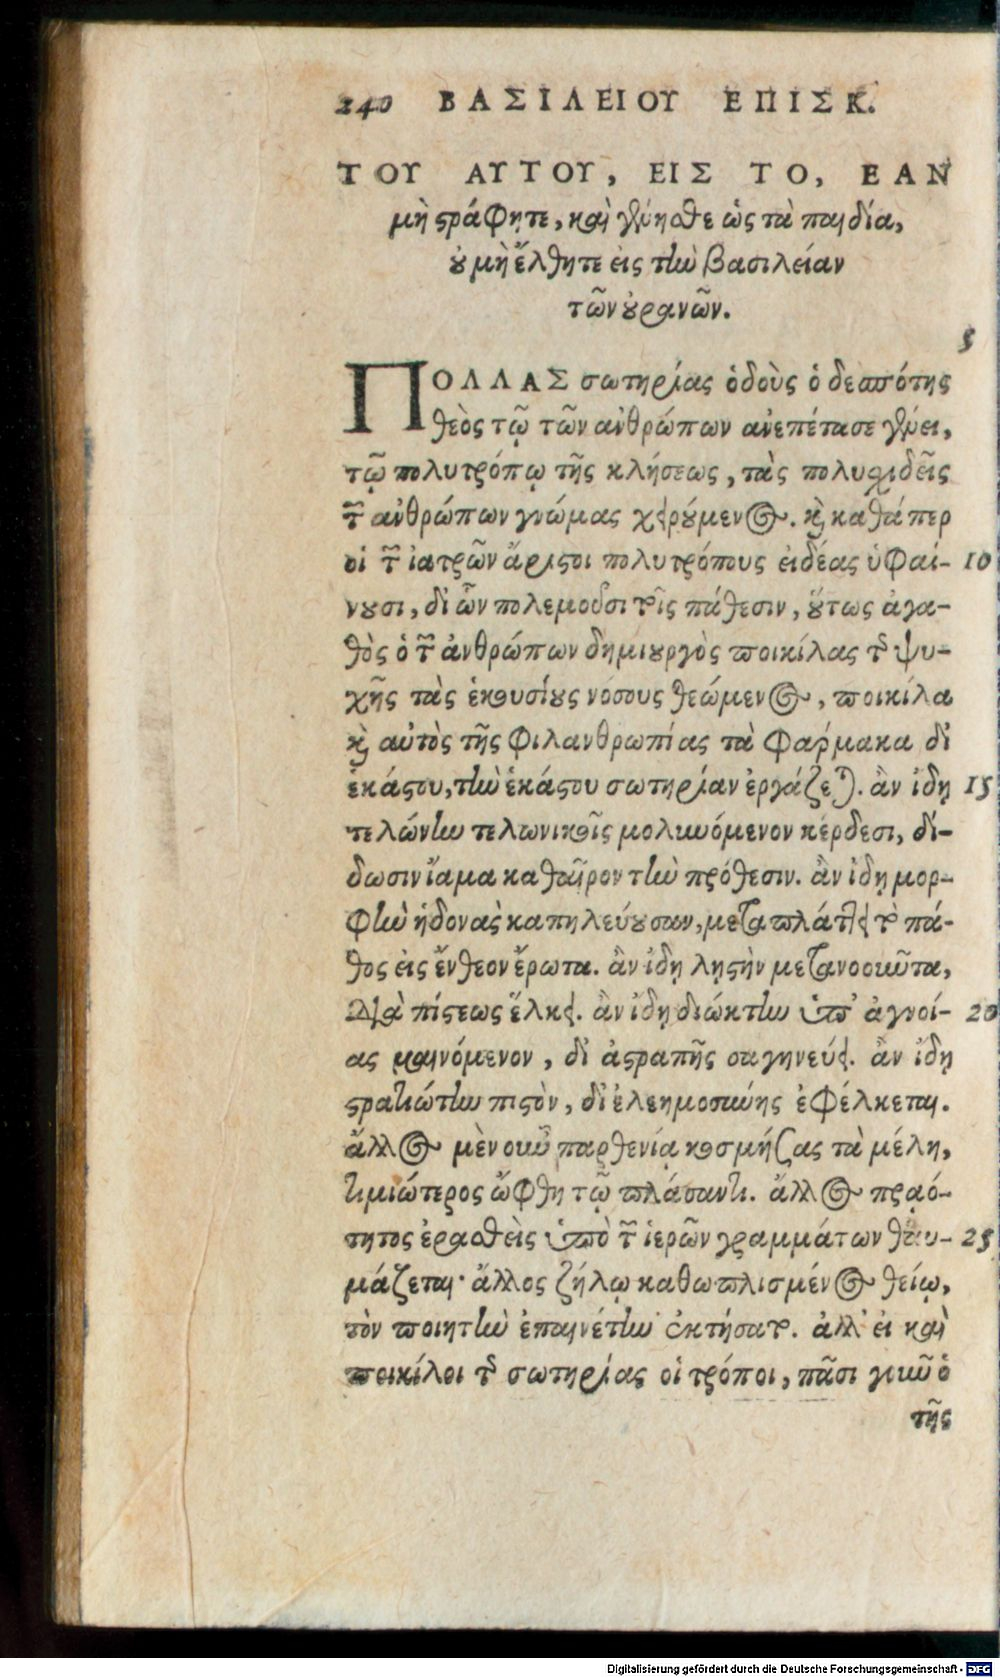 240 ΒΑΣΙΛΕΙΟΥ ΕΠΙΣΚ.
ΤΟΥ ΑΥΤΟΥ, ΕΙΣ ΤΟ, ΕΑΝ
μὴ στράφητε, καὶ γένησθε ὡς τὰ παιδία,
οὐ μὴ ἔλθητε εἰς τὴν βασιλείαν
τῶν οὐρανῶν.
5
ΠΟΛΛΑΣ σωτηρίας ὁδοὺς ὁ δεσπότης
θεὸς τῷ τῶν ἀνθρώπων ἀνεπέτασε γένει,
τῷ πολυτρόπῳ τῆς κλήσεως, τὰς πολυσχιδεῖς
τῶν ἀνθρώπων γνώμας χειρούμενος. καὶ καθάπερ
οἱ τῶν ἰατρῶν ἄριστοι πολυτρόπους εἰδέας ὑφαί- 10
νουσι, δι ὧν πολεμοῦσι τοῖς πάθεσιν, οὕτως ἀγα-
θὸς ὁ τῶν ἀνθρώπων δημιουργὸς ποικίλας τῆς ψυ-
χῆς τὰς ἑκουσίους νόσους θεώμενος, ποικίλα
καὶ αὐτὸς τῆς φιλανθρωπίας τὰ φάρμακα δι
ἑκάστου, τὴν ἑκάστου σωτηρίαν ἐργάζεται. ἂν ἴδῃ 15
τελώνην τελωνικοῖς μολυνόμενον κέρδεσι, δί-
δωσιν ἴαμα καθαῖρον τὴν πρόθεσιν. ἂν ἴδῃ μορ-
φὴν ἡδονὰς καπηλεύουσαν, μεταπλάττει τὸ πά-
θος εἰς ἔνθεον ἔρωτα. ἂν ἴδῃ λῃστὴν μετανοοῦντα,
διὰ πίστεως ἕλκει. ἂν ἴδῃ διώκτην ὑπ' ἀγνοί- 20
ας μαινόμενον, δι ἀστραπῆς σαγηνεύει. ἂν ἴδῃ
στρατιώτην πιστὸν, δι ἐλεημοσύνης ἐφέλκεται.
ἄλλος μὲν οὖν παρθενίᾳ κοσμήσας τὰ μέλη,
τιμιώτερος ὤφθη τῷ πλάσαντι. ἄλλος πραό-
τητος ἐρασθεὶς ὑπὸ τῶν ἱερῶν γραμμάτων θαυ- 25
μάζεται· ἄλλος ζήλῳ καθωπλισμένος θείῳ,
τὸν ποιητὴν ἐπαινέτην ἐκτήσατο. ἀλλ' εἰ καὶ
ποικίλοι τῆς σωτηρίας οἱ τρόποι, πᾶσι γοῦν ὁ
τῆς
Digitalisierung gefördert durch die Deutsche Forschungsgemeinschaft - DFG